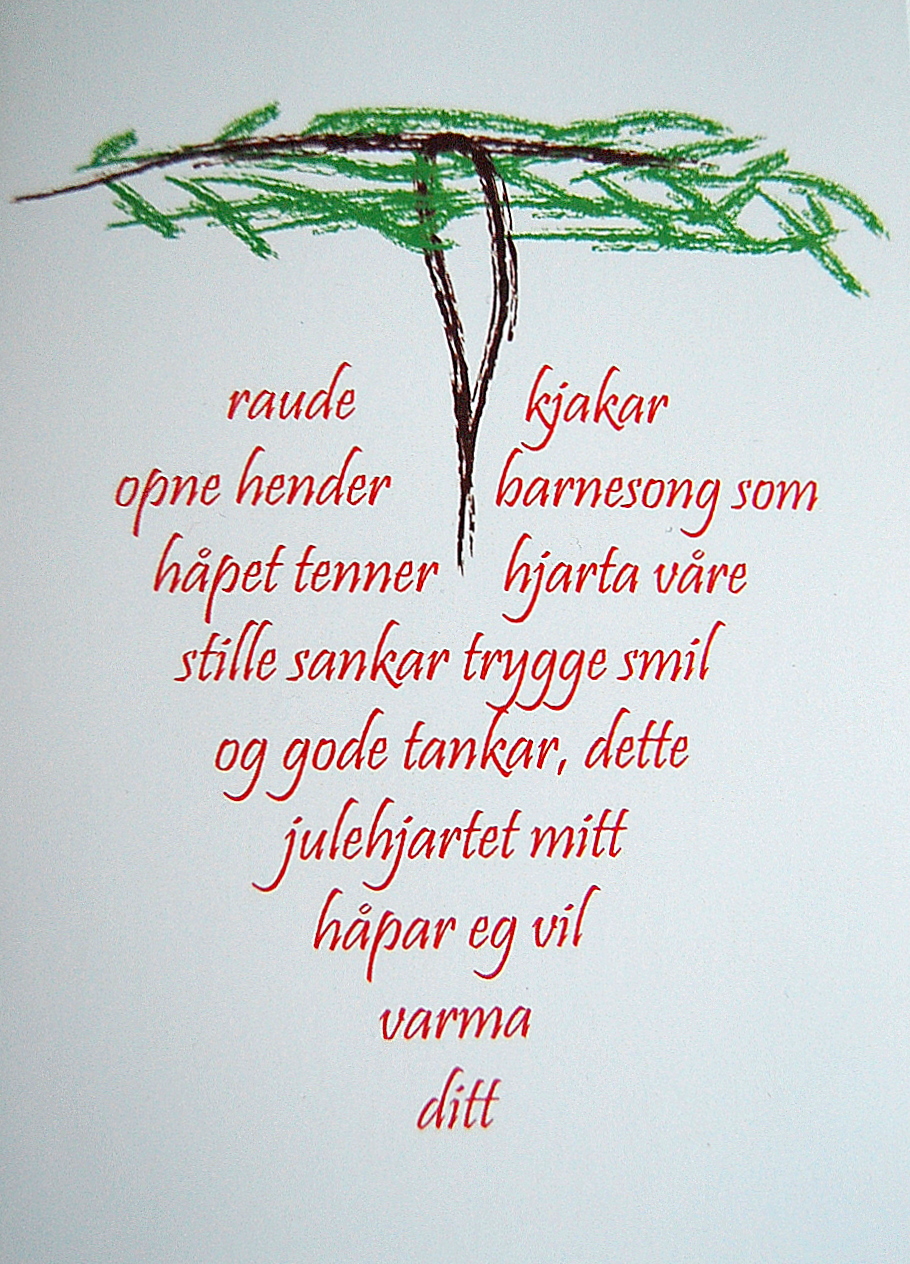 raude kjakar
opne hender barnesong som
håpet tenner hjarta våre
stille sankar trygge smil
og gode tankar, dette
julehjartet mitt
håpar eg vil
varma
ditt